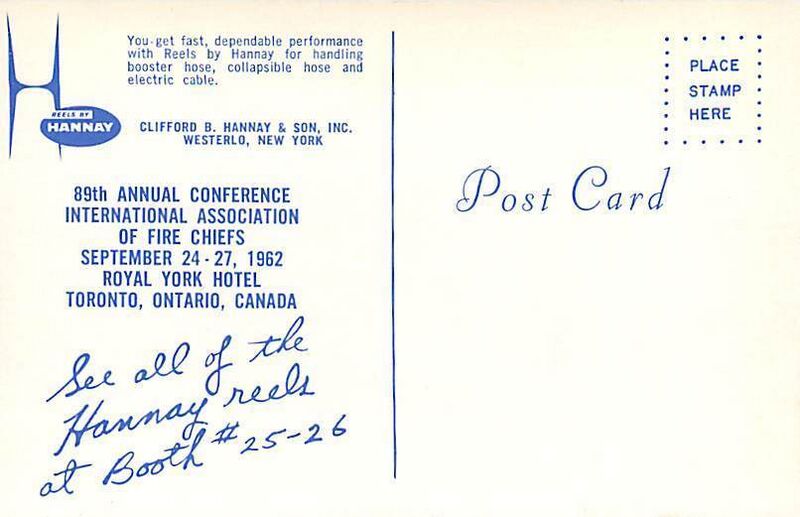 You get fast, dependable performance
with Reels by Hannay for handling
booster hose, collapsible hose and
electric cable.
REELS BY
HANNAY
CLIFFORD B. HANNAY & SON, INC.
WESTERLO, NEW YORK
89th ANNUAL CONFERENCE
INTERNATIONAL ASSOCIATION
OF FIRE CHIEFS
SEPTEMBER 24-27, 1962
ROYAL YORK HOTEL
TORONTO, ONTARIO, CANADA
See all of the
Hannay reels
at Booth #25-26
PLACE
STAMP
HERE
Post Card